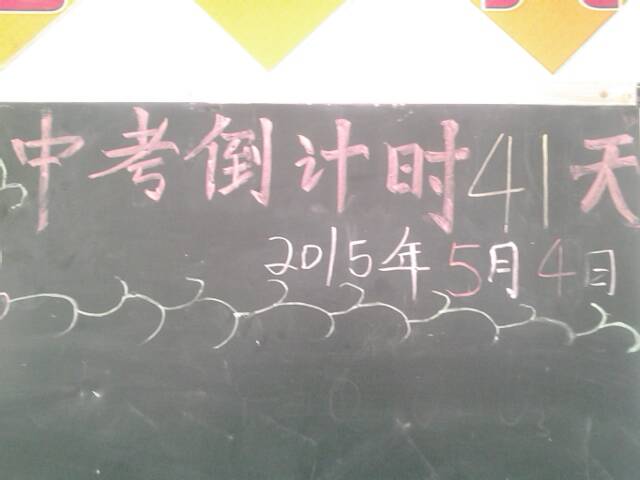 中考倒计时41天
2015年5月4日